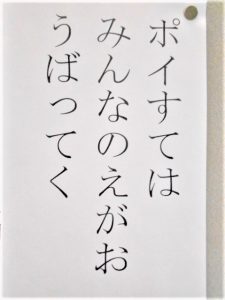 ポイすては
みんなのえがお
うばってく